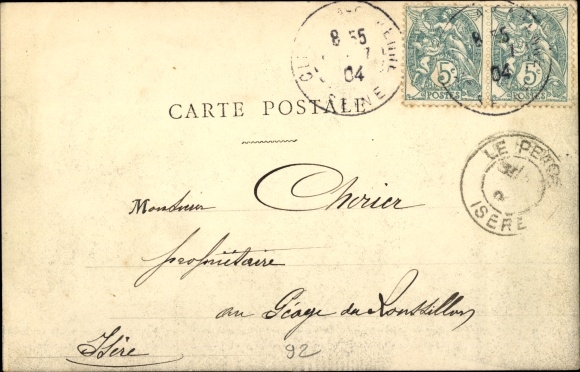 8 35
7
04
SEINE
5c 5c
POSTES POSTES
8 35
04
CARTE POSTALE
LE PÉAGE
ISÈRE
Monsieur Cherier
propriétaire
au Péage du Roussillon
Isère
92